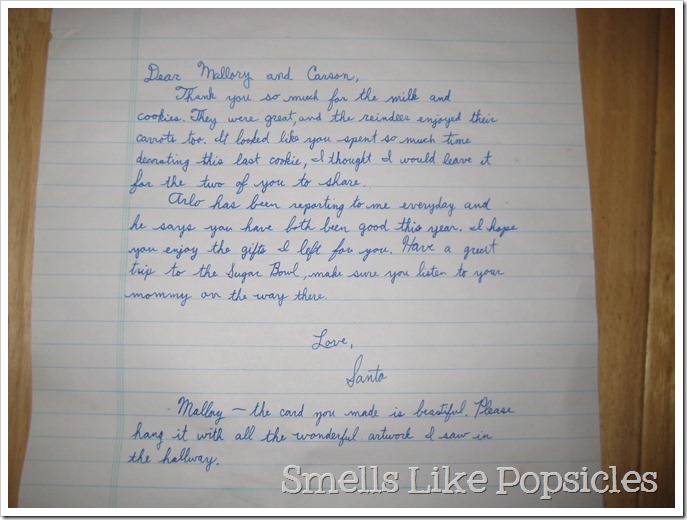 Dear Mallory and Carson,
Thank you so much for the milk and
cookies. They were great, and the reindeer enjoyed their
carrots too. It looked like you spent so much time
decorating this last cookie, I thought I would leave it
for the two of you to share.
Arlo has been reporting to me everyday and
he says you have both been good this year. I hope
you enjoy the gifts I left for you. Have a great
trip to the Sugar Bowl, make sure you listen to your
mommy on the way there.
Love,
Santa
Mallory - the card you made is beautiful. Please
hang it with all the wonderful artwork I saw in
the hallway.
Smells Like Popsicles